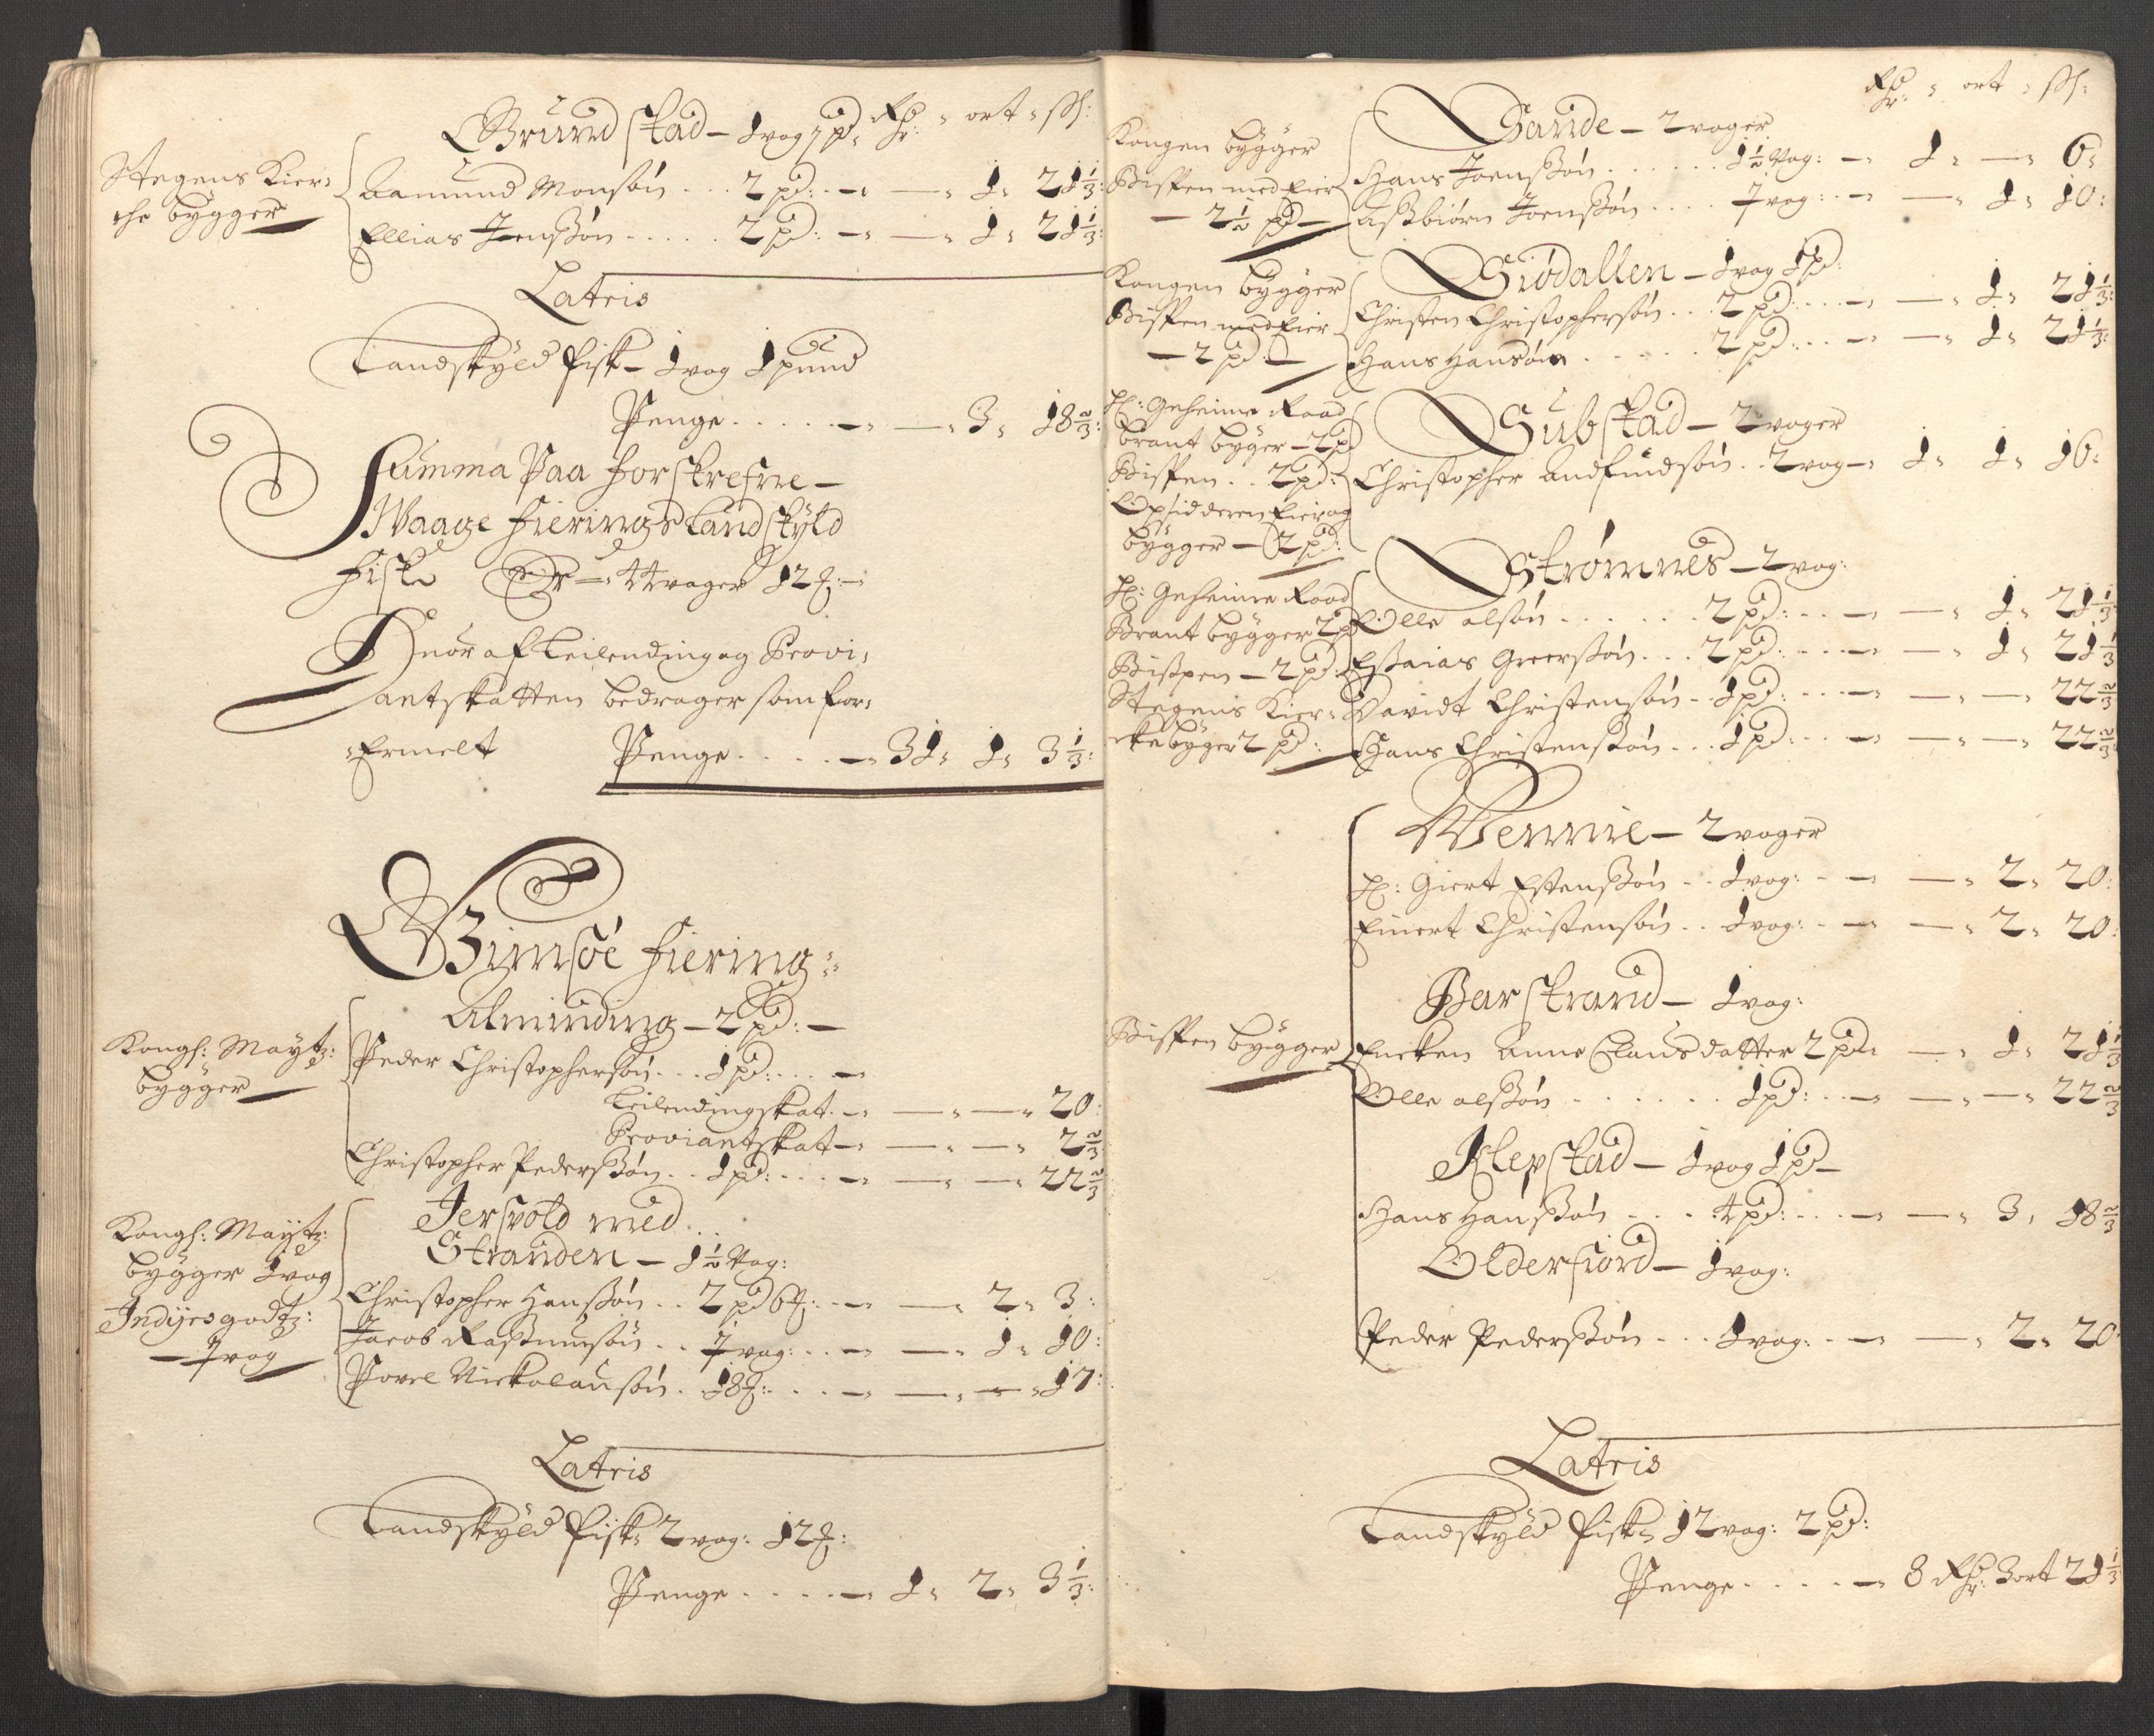 Brundstad – 1 vog 1 pd: Rdr: ort: ss:
Stegens Kier-
che bygger
Aamund Monsøn . . . 2 pd: – — 1, 21⅓:
Ellias Jenssøn . . . . . 2 pd: – — 1, 21⅓:
Latris
Landskyld fisk – 1 vog 1 pund
Penge . . . . . – — 3, 18⅔:
Summa Paa forskrefne –
Waage fierings Landskyld
fiske Er – 44 voger 12 ℔: –
Huor af Leilending og Provi-
antskatten bedrager som for-
-Ermelt Penge . . . . – 31, 1, 3⅓:
Gimsøe fiering:
Alminding – 2 pd: –
Kongl: Maytz:
bygger
Peder Christophersøn . . . 1 pd: . . . –
Leilendingskat – — — 20:
Proviantskat – — — 2⅔
Christopher Pederssøn . . 1 pd: . . . – — — 22⅔
Jersvold med
Stranden – 1½ Vog:
Kongl: Maytz:
bygger 1 vog
Indijes godtz:
– ½ vog
Christopher Hanssøn . . 2 pd 6 ℔: – — 2, 3:
Jacob Rasmussøn . . ½ vog: . . – — 1, 10:
Povel Nickolaussøn . 18 ℔: . . – — — 17:
Latris
Landskyld fisk: 2 vog: 12 ℔:
Penge . . . . – 1, 2, 3⅓:
Rdr: ort: ss:
Sande – 2 voger
Kongen bygger
Bispen med Eier
– 2½ pd –
Hans Joenssøn . . . . . . 1½ Vog: – 1, — 6:
Asbiørn Joenssøn . . . . ½ vog: – — 1, 10:
Siødallen – 1 vog 1 pd:
Kongen bygger
Bispen med Eier
– 2 pd: –
Christen Christophersøn . . 2 pd: . . – — 1, 21⅓:
Hans Hansøn . . . . . 2 pd: . . – — 1, 21⅓:
H: Geheime Raad
Brant byger – 2 pd
Bispen . . 2 pd:
Opsidderen Eier og
bygger – 2 pd:
Substad – 2 voger
Christopher Andfindsøn . . 2 vog – 1, 1, 16:
Strømnes – 2 vog:
H: Geheime Raad
Brant bygger 2 pd
Bispen – 2 pd:
Stegens Kier-
cke byger 2 pd:
Olle Olsøn . . . . . . 2 pd: . . – — 1, 21⅓
Esaias Greerssøn . . . 2 pd: . . – — 1, 21⅓
Davidt Christensøn – 1 pd: . . – — — 22⅔
Hans Christenssøn . . . 1 pd: . . – — — 22⅔
Wennie – 2 voger
H: Giert Estenssøn . . 1 vog: – — 2, 20:
Einert Christensøn . . 1 vog: – — 2, 20:
Barstrand – 1 vog:
Bispen bygger
Encken Anne Clausdatter 2 pd: — 1, 21⅓
Olle Olssøn . . . . . . 1 pd: . . – — — 22⅔
Klepstad – 1 vog 1 pd –
Hans Hanssøn . . . . 4 pd: . . . – — 3, 18⅔
Olderfiord – 1 vog:
Peder Pederssøn . . . 1 vog: – — 2, 20:
Latris
Landskyld fisk: 12 vog: 2 pd:
Penge . . . . – 8 Rdr: 3 ort 21⅓